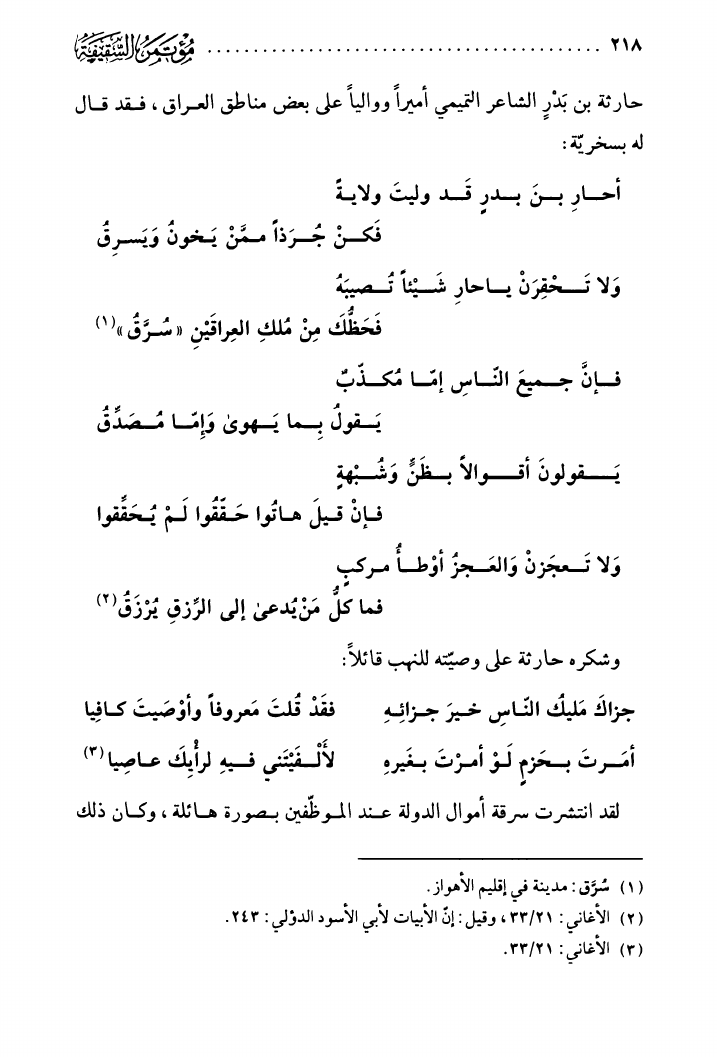 ٢١٨ ........................................ مُؤتَمَرُ السَّقِيفَة
حارثة بن بَدْرٍ الشاعر التميمي أميراً ووالياً على بعض مناطق العـراق ، فـقد قـال
له بسخريّة :
أحـارِ بـنَ بـدرٍ قَـد وليتَ ولايـةً
فَكـنْ جُـرَذاً مـمَّنْ يَـخونُ وَيَسـرِقُ
وَلا تَـحْقِرَنْ يـاحارِ شَـيْئاً تُـصيبَهُ
فَحَظُّكَ مِنْ مُلكِ العِراقَيْنِ «سُـرَّقُ»(١)
فـإنَّ جـميعَ النّـاسِ إمّـا مُكـذّبٌ
يَـقولُ بِـما يَـهوىٰ وَإِمّـا مُـصَدِّقُ
يَـقولونَ أقـوالاً بـظَنٍّ وَشُـبْهةٍ
فـإنْ قـيلَ هـاتُوا حَـقّقُوا لَـمْ يُـحَقِّقوا
وَلا تَـعجَزنْ وَالعَـجزُ أوْطـأُ مـركبٍ
فما كلُّ مَنْ يُدعىٰ إلى الرِّزقِ يُرْزَقُ(٢)
وشكره حارثة على وصيّته للنهب قائلاً:
جزاكَ مَليكُ النّـاسِ خـيرَ جـزائِـهِ فقَدْ قُلتَ مَعروفاً وأوْصَيتَ كـافِيا
أمَـرتَ بـحَزمٍ لَـوْ أمـرْتَ بـغَيرهِ لأَلْـفَيْتَني فـيهِ لرأْيِكَ عـاصِيا(٣)
لقد انتشرت سرقة أموال الدولة عـند المـوظّفين بـصورة هـائلة ، وكـان ذلك
(١) سُرَّق : مدينة في إقليم الأهواز.
(٢) الأغاني : ٣٣/٢١ ، وقيل : إنّ الأبيات لأبي الأسود الدؤلي : ٢٤٣.
(٣) الأغاني : ٣٣/٢١.